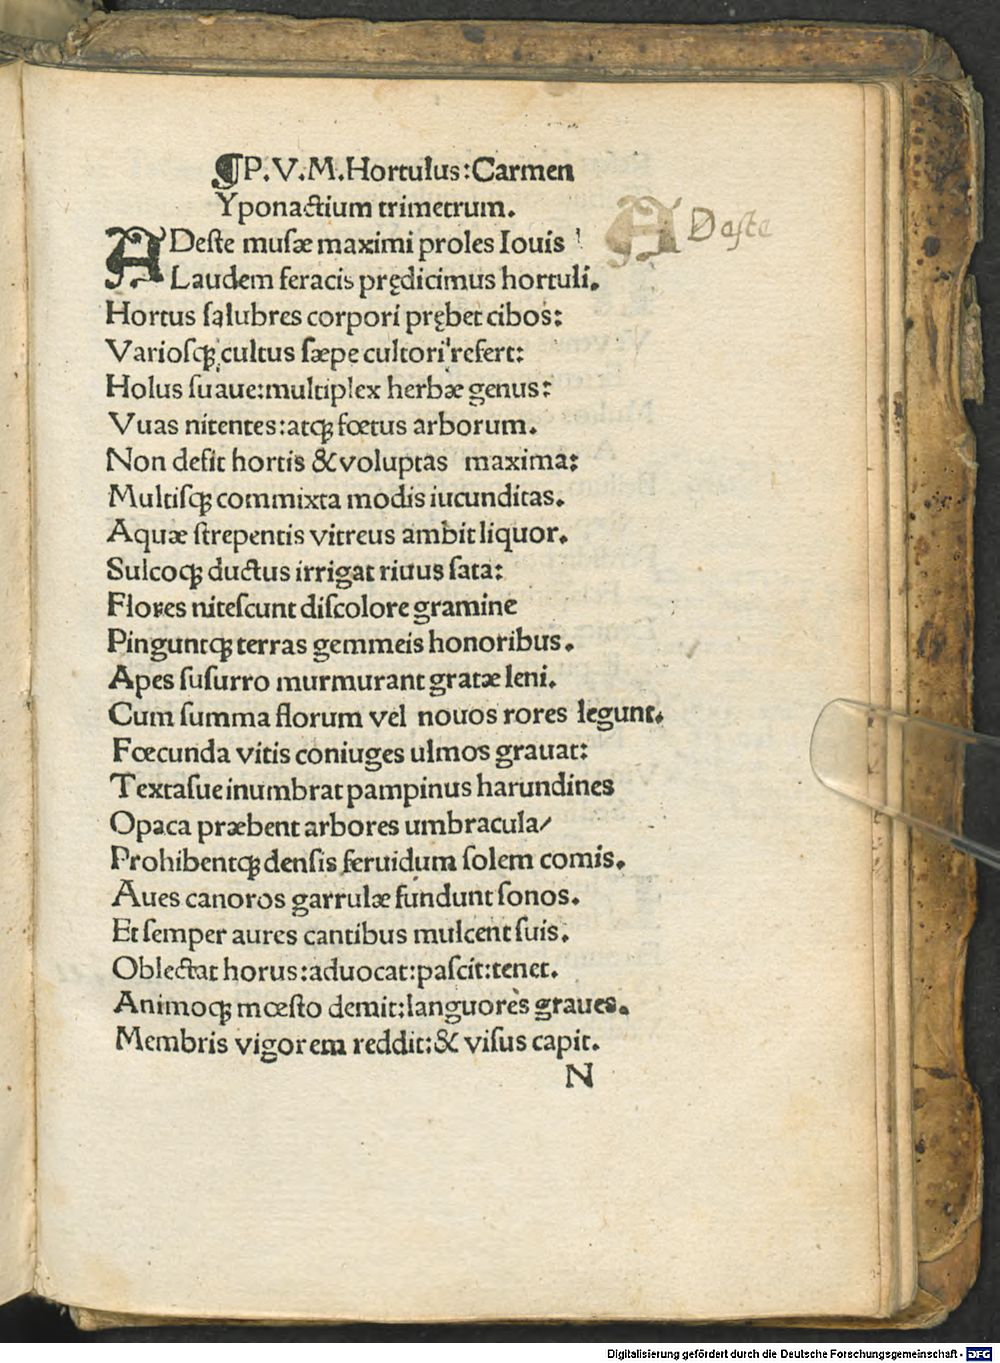 ¶P.V.M.Hortulus:Carmen
Yponactium trimetrum.
ADeſte muſæ maximi proles Iouis
Laudem feracis prędicimus hortuli.
Hortus ſalubres corpori prębet cibos:
Varioſqꝫ cultus ſæpe cultori refert:
Holus ſuaue:multiplex herbæ genus:
Vuas nitentes:atqꝫ fœtus arborum.
Non defit hortis &voluptas maxima:
Multiſqꝫ commixta modis iucunditas.
Aquæ ſtrepentis vitreus ambit liquor.
Sulcoqꝫ ductus irrigat riuus ſata:
Flores niteſcunt diſcolore gramine
Pinguntqꝫ terras gemmeis honoribus.
Apes ſuſurro murmurant gratæ leni.
Cum ſumma florum vel nouos rores legunt.
Fœcunda vitis coniuges ulmos grauat:
Textaſue inumbrat pampinus harundines
Opaca præbent arbores umbracula/
Prohibentqꝫ denſis feruidum ſolem comis.
Aues canoros garrulæ fundunt ſonos.
Et ſemper aures cantibus mulcent ſuis.
Oblectat horus:aduocat:paſcit:tenet.
Animoqꝫ mœſto demit:languores graues.
Membris vigorem reddit:& viſus capit.
N
A Deſte
Digitalisierung gefördert durch die Deutsche Forschungsgemeinschaft - DFG